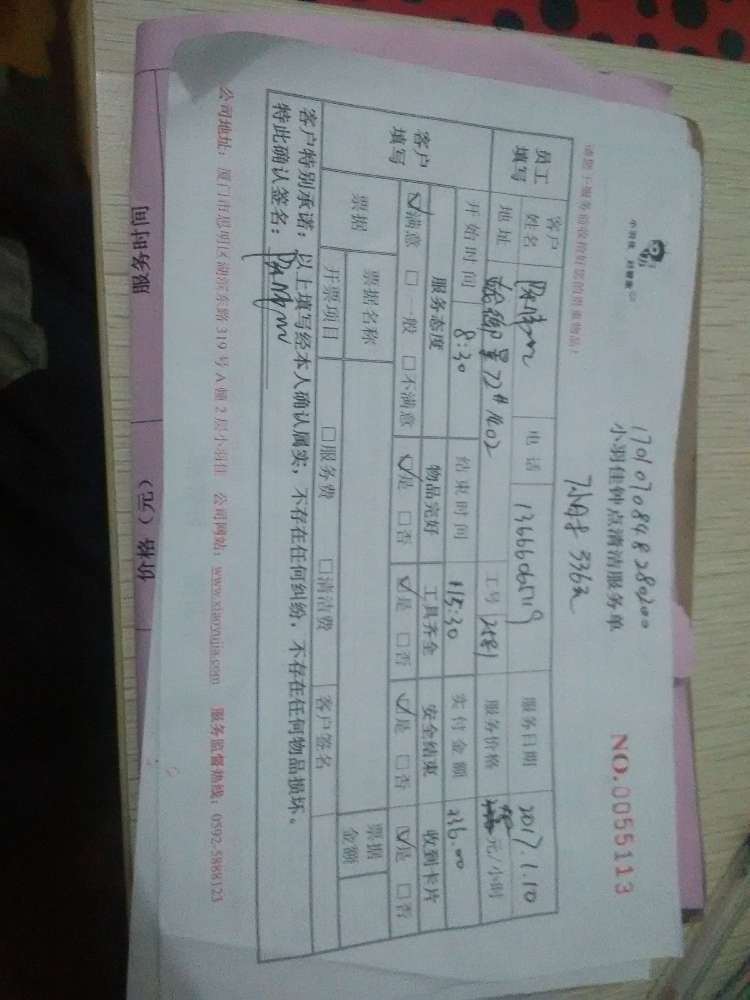 小羽佳 好管家
17010708848280200
小羽佳钟点清洁服务单
NO.0055113
7小时 336元
请您于服务前收拾好您的贵重物品!
员工填写 客户姓名 电话 服务日期 2017.1.10
地址 22#1402 工号 2581 服务价格 元/小时
客户填写 开始时间 8:30 结束时间 15:30 实付金额 336.00
服务态度 物品完好 工具齐全 安全结束 收到卡片
☑满意 □一般 □不满意 ☑是 □否 ☑是 □否 ☑是 □否 ☑是 □否
票据 票据名称 票据金额
开票项目 □服务费 □清洁费 客户签名
客户特别承诺:以上填写经本人确认属实,不存在任何纠纷,不存在任何物品损坏。
特此确认签名:
公司地址:厦门市思明区湖滨东路319号A幢2层小羽佳 公司网站:www.xiaoyujia.com 服务监督热线:0592-5888123
服务时间 价格(元)